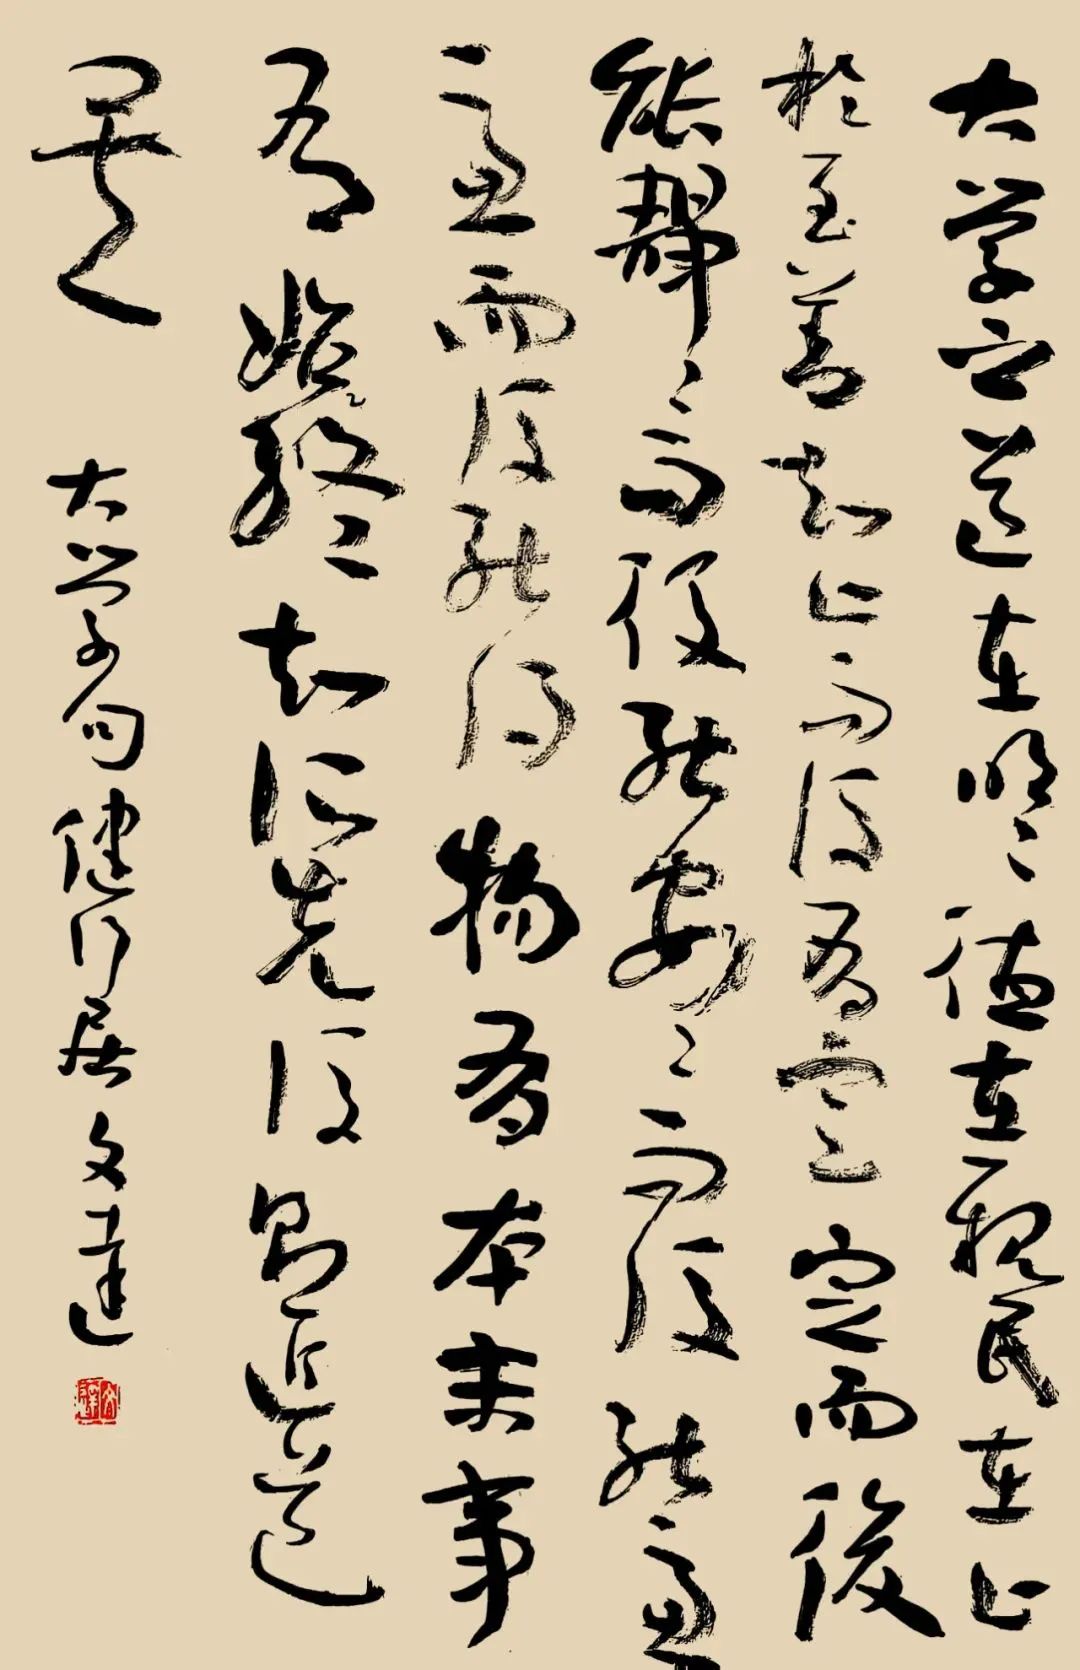 大学之道在明〻德在親民在止
於至善知止而後有定定而後
能靜〻而後能安〻而後能慮
慮而後能得物有本末事
有始終〻知所先後則近道
矣 大学句健行居文達